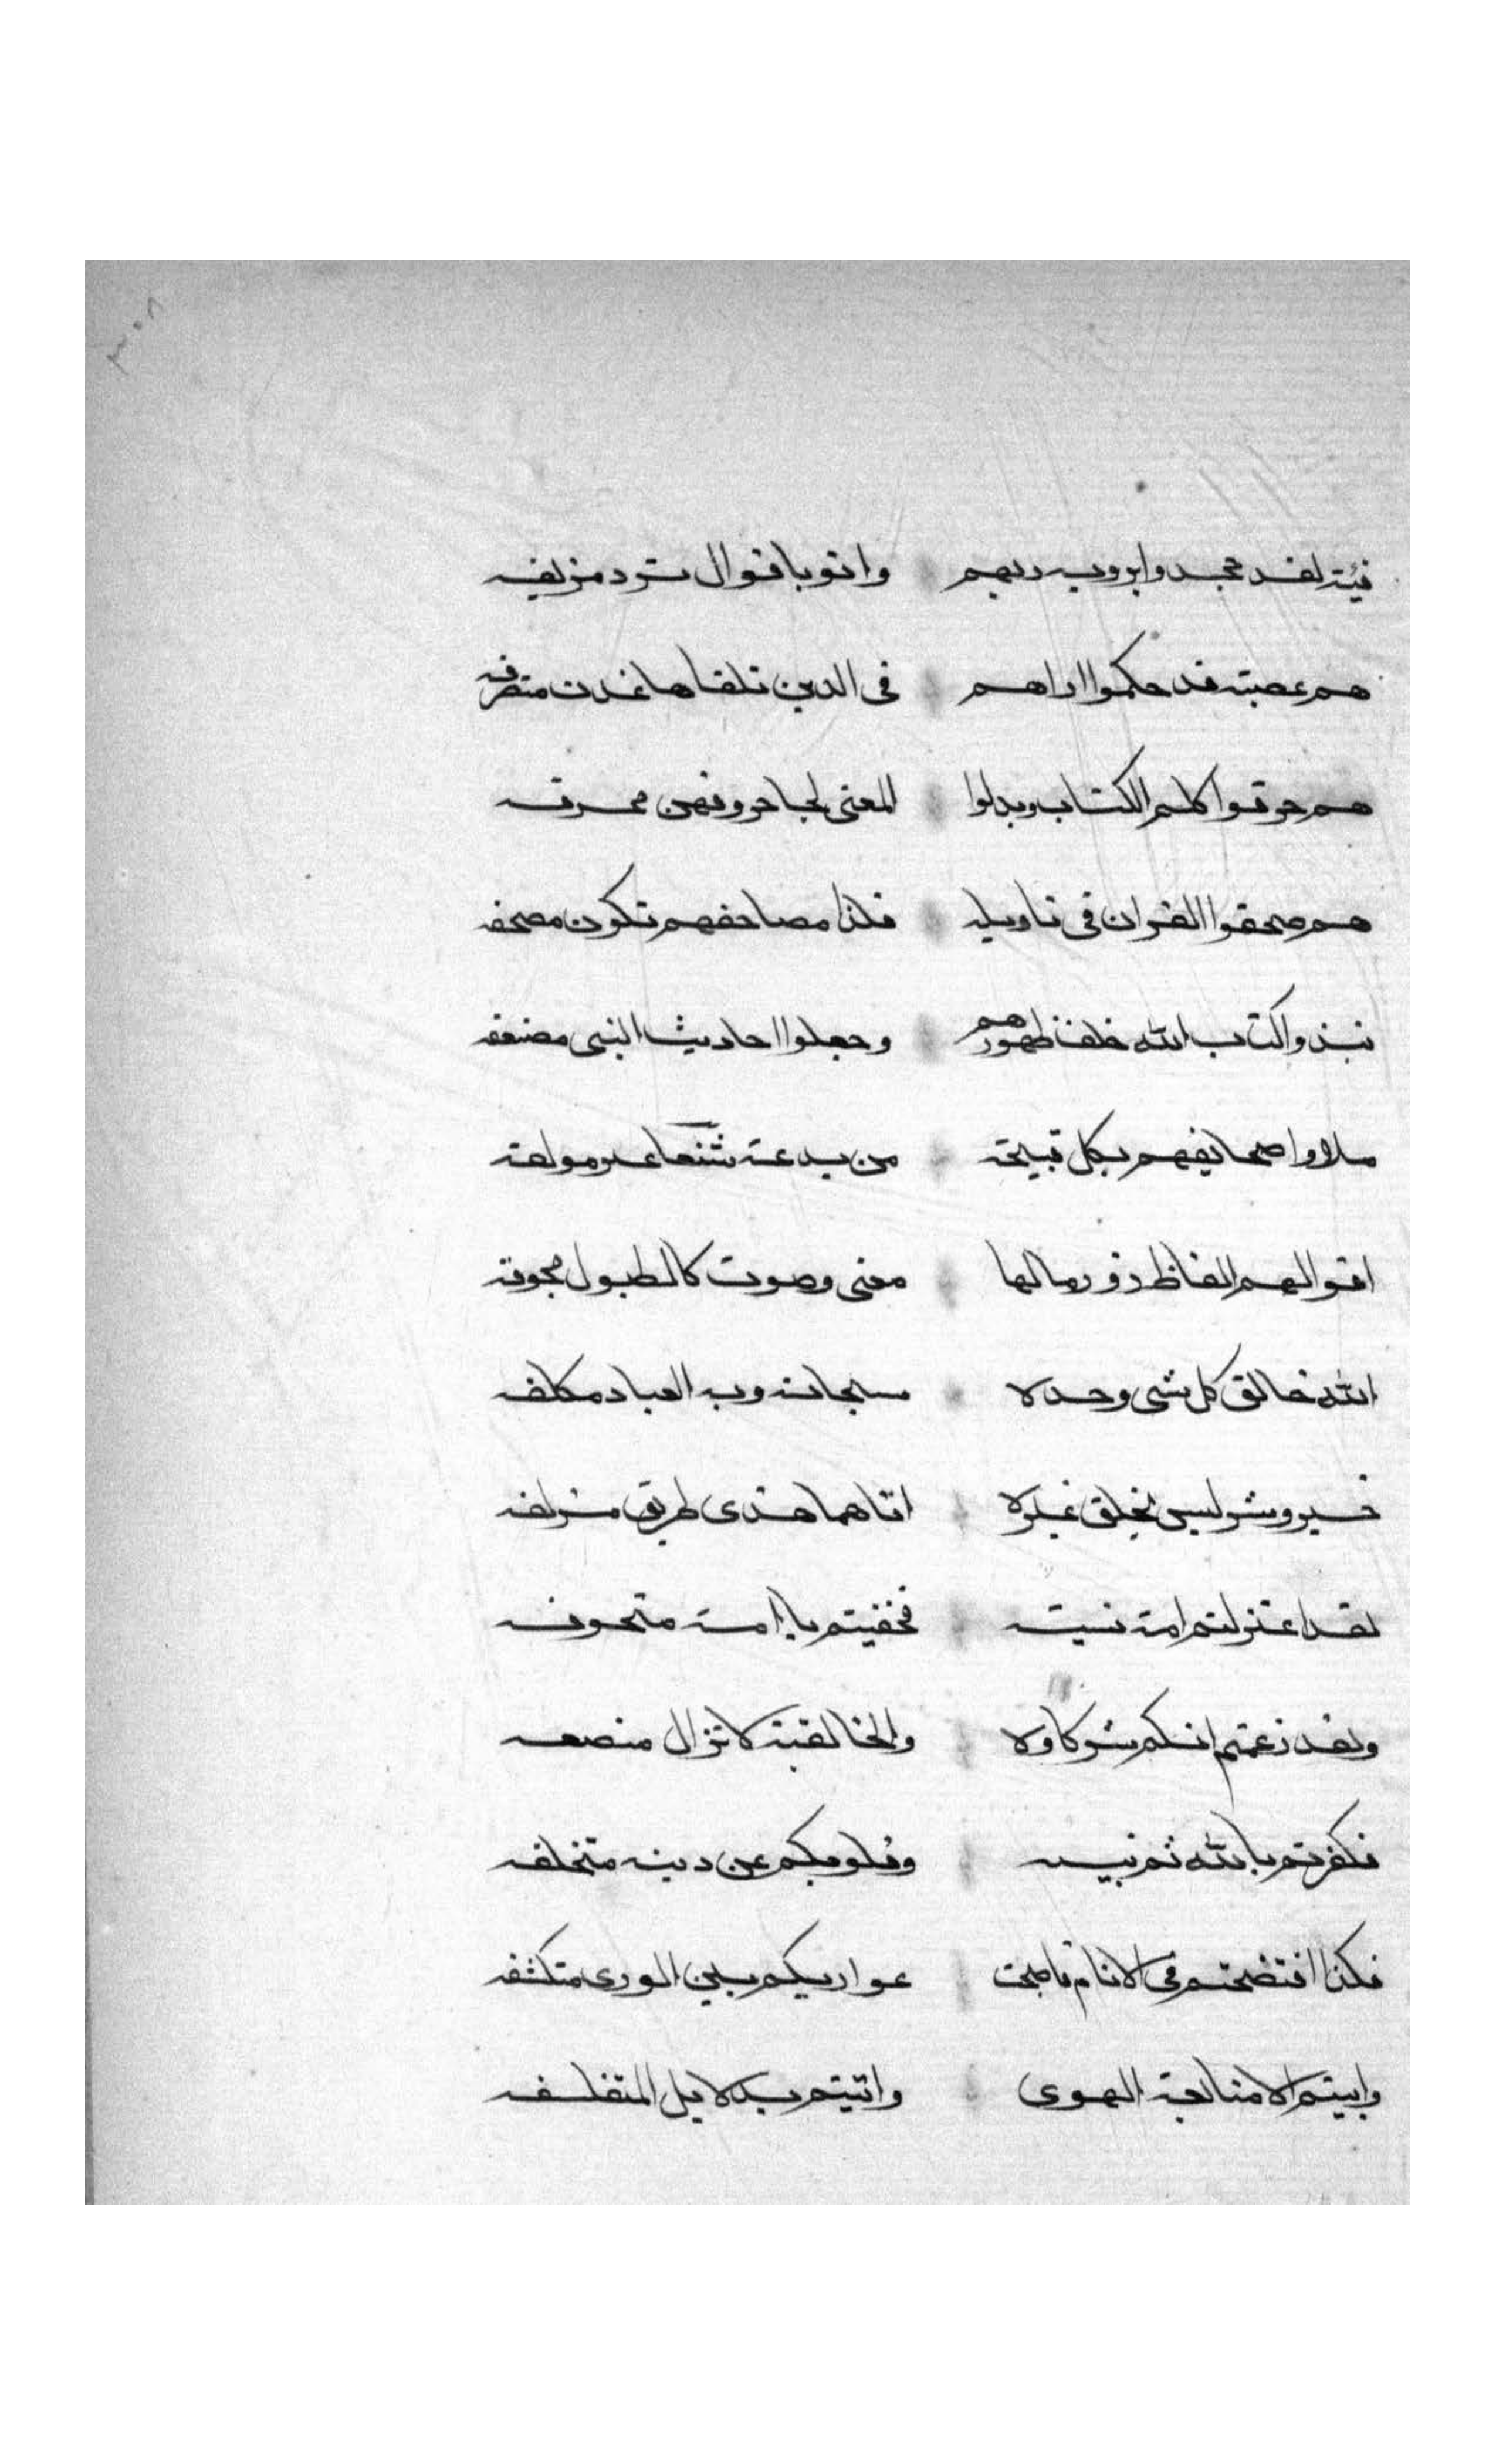 فئة لقد جحدوا بروية ربهم واتوا باقوال ترد مزيفه
هم عصبة قد حكموا اراهم في الدين تلقاها غدت متصرفه
هم حرفوا كلم الكتاب وبدلوا المعنى فجا حروفهن محرفه
هم صحفوا القران في تاويله فلذا مصاحفهم تكون مصحفه
نبذوا كتاب الله خلف ظهورهم وجعلوا احاديث النبي مضعفه
ملاوا صحايفهم بكل قبيحة من بدعة شنعا
اقوالهم الفاظ زور مالها معنى وصوت كالطبول مجوفه
الله خالق كل شي وحده سبحانه رب العباد مكلفه
خير وشر ليس يخلق غيره
لقد اعتزلتم امة
ولقد زعمتم انكم شركاوه والخالقية لا تزال منصفه
فكفرتم بالله ثم نبيه وقلوبكم عن دينه متخلفه
فلذا افتضحتم في الانام فاصبحت عواريكم بين الورى متكشفه
وابيتم الا متابعة الهوى واتيتم بدلايل المتفلسفه